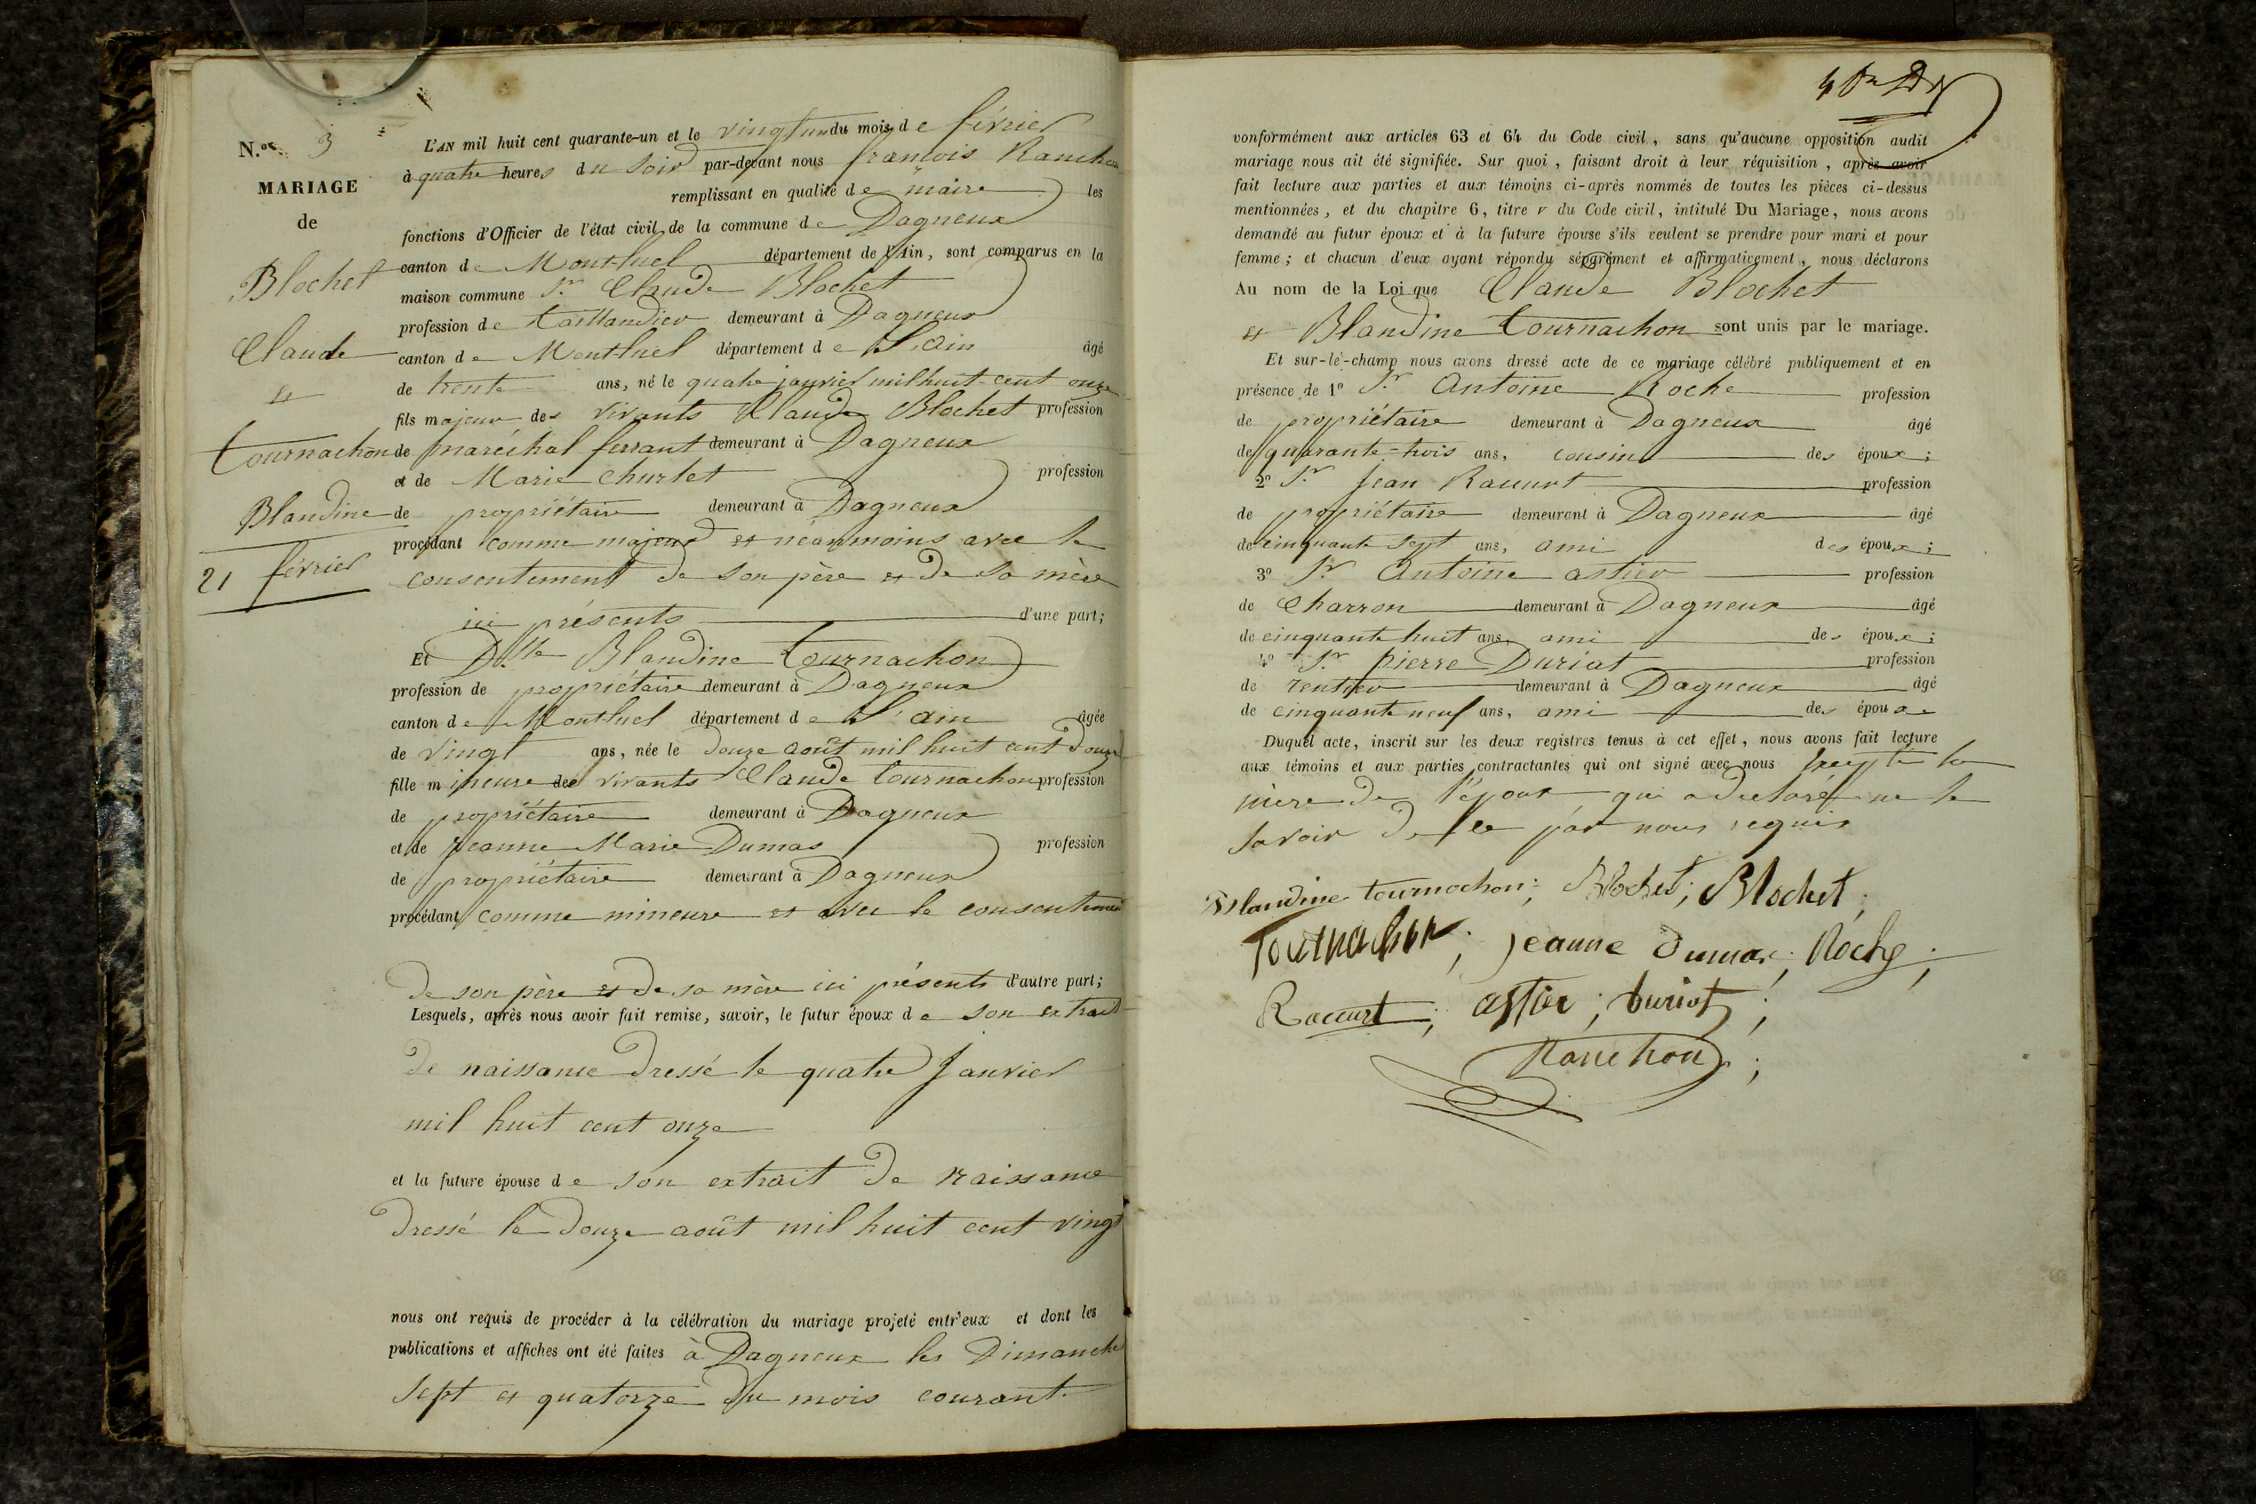 N.os 3
MARIAGE
de
Blochet
Claude
et
Tournachon
Blandine
21 février
L'AN mil huit cent quarante-un et le vingt un du mois de février
à quatre heures du soir par-devant nous françois Ranchon
remplissant en qualité de maire les
fonctions d'Officier de l'état civil de la commune de Dagneux
canton de Montluel département de l'Ain, sont comparus en la
maison commune Sr Claude Blochet
profession de taillandier demeurant à Dagneux
canton de Montluel département de L'ain âgé
de trente ans, né le quatre janvier mil huit cent onze
fils majeur des vivants Claude Blochet profession
de maréchal ferrant demeurant à Dagneux
et de Marie Churlet profession
de propriétaire demeurant à Dagneux
procédant comme majeur et néanmoins avec le
consentement de son père et de sa mère
ici présents d'une part;
Et Dlle Blandine Tournachon
profession de propriétaire demeurant à Dagneux
canton de Montluel département de L'ain âgée
de vingt ans, née le douze août mil huit cent douze
fille mineure des vivants Claude Tournachon profession
de propriétaire demeurant à Dagneux
et de Jeanne Marie Dumas profession
de propriétaire demeurant à Dagneux
procédant comme mineure et avec le consentement
de son père et de sa mère ici présents d'autre part;
Lesquels, après nous avoir fait remise, savoir, le futur époux de son extrait
de naissance dressé le quatre Janvier
mil huit cent onze
et la future épouse de son extrait de naissance
dressé le douze août mil huit cent vingt
nous ont requis de procéder à la célébration du mariage projeté entr'eux et dont les
publications et affiches ont été faites à Dagneux les Dimanches
sept et quatorze du mois courant
conformément aux articles 63 et 64 du Code civil, sans qu'aucune opposition audit
mariage nous ait été signifiée. Sur quoi, faisant droit à leur réquisition, après avoir
fait lecture aux parties et aux témoins ci-après nommés de toutes les pièces ci-dessus
mentionnées, et du chapitre 6, titre v du Code civil, intitulé Du Mariage, nous avons
demandé au futur époux et à la future épouse s'ils veulent se prendre pour mari et pour
femme; et chacun d'eux ayant répondu séparément et affirmativement, nous déclarons
Au nom de la Loi que Claude Blochet
et Blandine Tournachon sont unis par le mariage.
Et sur-le-champ nous avons dressé acte de ce mariage célébré publiquement et en
présence de 1º Sr Antoine Roche profession
de propriétaire demeurant à Dagneux âgé
de quarante-trois ans, cousin des époux;
2º Sr Jean Raccurt profession
de propriétaire demeurant à Dagneux âgé
de cinquante sept ans, ami des époux;
3º Sr Antoine astier profession
de Charron demeurant à Dagneux âgé
de cinquante huit ans, ami des époux;
4º Sr pierre Duriat profession
de rentier demeurant à Dagneux âgé
de cinquante neuf ans, ami des époux
Duquel acte, inscrit sur les deux registres tenus à cet effet, nous avons fait lecture
aux témoins et aux parties contractantes qui ont signé avec nous excepté la
mère de l'époux qui a déclaré ne le
savoir de ce par nous requis
Blandine tournachon; Blochet; Blochet;
Tournachon; jeanne dumas; Roche;
Raccurt; astier; duriat;
Ranchon;